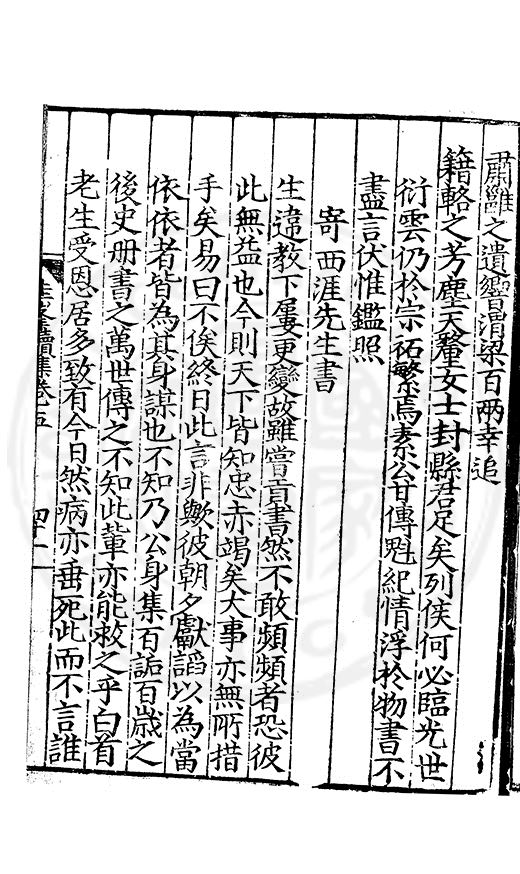 肅雝之遺響渭梁百兩幸追
籍輅之芳塵天釐女士封縣君足矣列侯何必臨光世
衍雲仍於宗祏繫焉素公甘傳魁紀情浮於物書不
盡言伏惟鑑照
寄西涯先生書
生違教下屢更變故雖嘗貢書然不敢頻頻者恐彼
此無益也今則天下皆知忠赤竭矣大事亦無所措
手矣易曰不俟終日此言非歟彼朝夕獻諂以為當
依依者皆為其身謀也不知乃公身集百詬百歲之
後史册書之萬世傳之不知此輩亦能救之乎白首
老生受恩居多致有今日然病亦垂死此而不言誰
圭峯續集卷十五
四十一